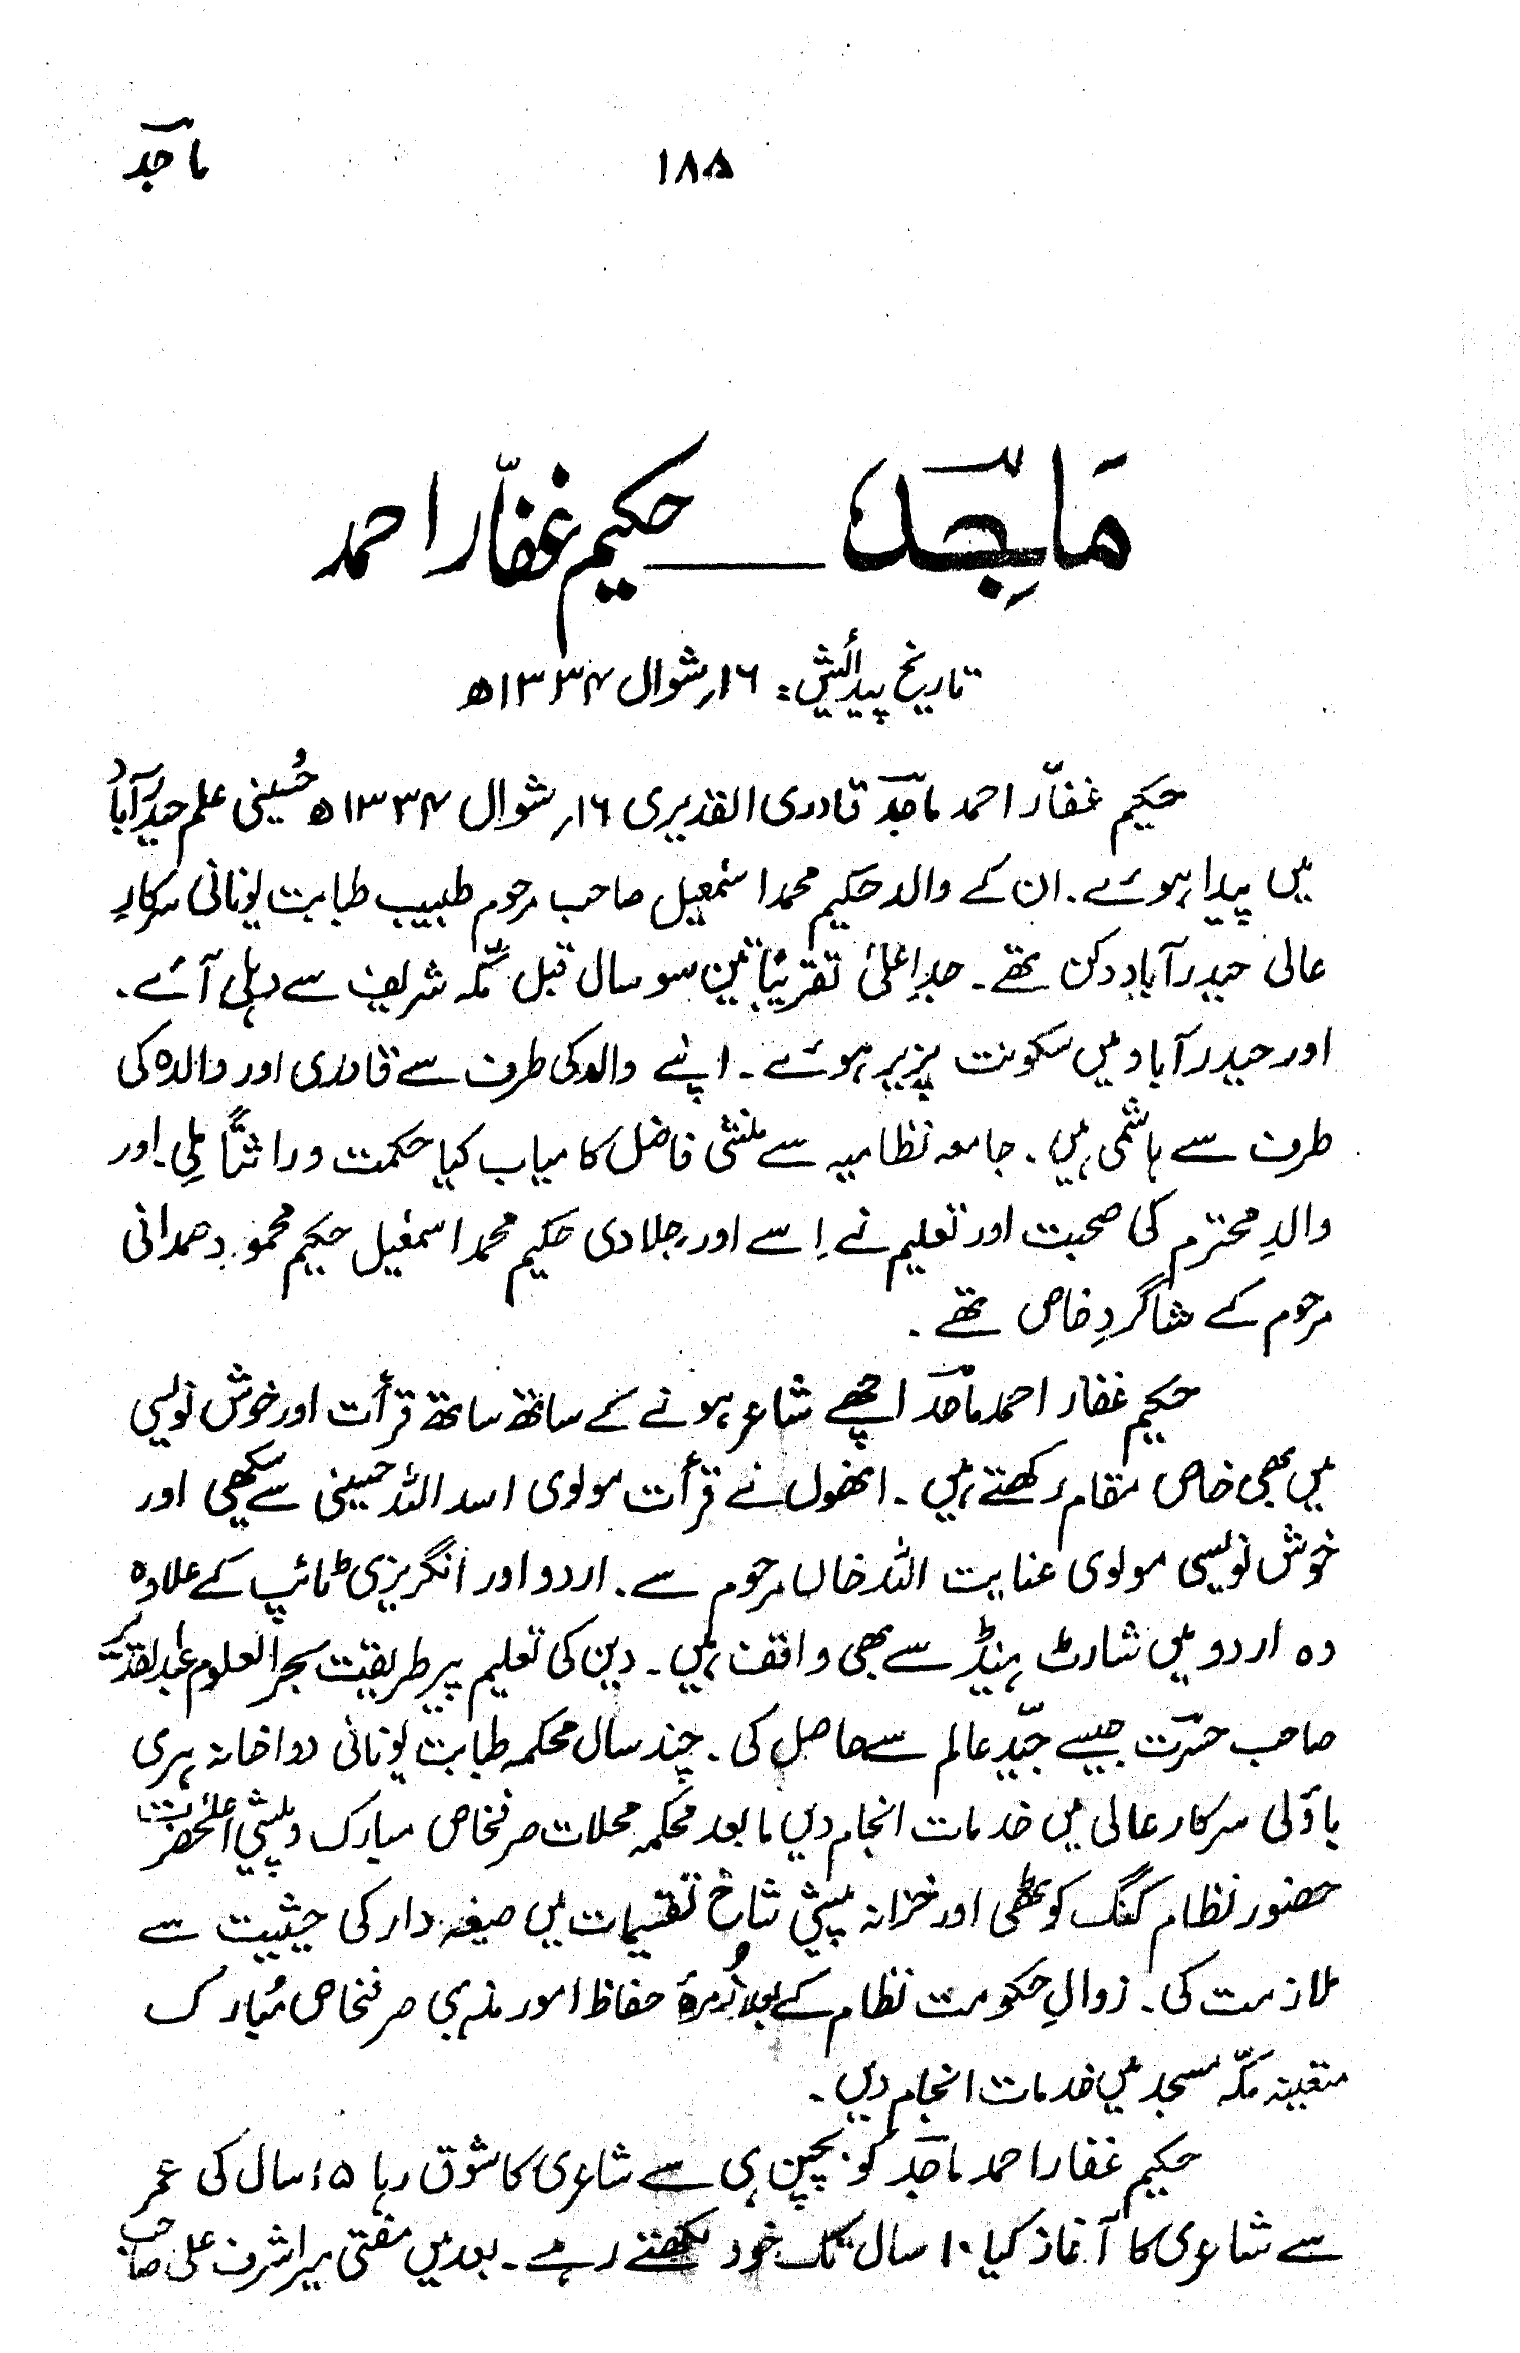 ماجدؔ
۱۸۵
مَاجِدؔ ــــ حکیم غفّار احمد
تاریخ پیدائش: ۱۶؍ شوال ۱۳۳۴ھ
حکیم غفّار احمد ماجدؔ قادری القدیری ۱۶؍ شوال ۱۳۳۴ھ حُسینی علم حیدرآباد
میں پیدا ہوئے۔ ان کے والد حکیم محمد اسمٰعیل صاحب مرحوم طبیب طبابت یونانی سرکارِ
عالی حیدرآباد دکن تھے۔ جدِ اعلیٰ تقریباً تین سو سال قبل مکّہ شریف سے دہلی آئے۔
اور حیدرآباد میں سکونت پزیر ہوئے۔ اپنے والد کی طرف سے قادری اور والدہ کی
طرف سے ہاشمی ہیں۔ جامعہ نظامیہ سے منشی فاضل کامیاب کیا حکمت وراثتاً مِلی۔ اور
والدِ محترم کی صحبت اور تعلیم نے اِسے اور جِلا دی حکیم محمد اسمٰعیل حکیم محمود صمدانی
مرحوم کے شاگردِ خاص تھے۔
حکیم غفار احمد ماجدؔ اچھے شاعر ہونے کے ساتھ ساتھ قرأت اور خوش نویسی
میں بھی خاص مقام رکھتے ہیں۔ انھوں نے قرأت مولوی اسد اللہ حسینی سے سیکھی اور
خوش نویسی مولوی عنایت اللہ خاں مرحوم سے۔ اردو اور انگریزی ٹائپ کے علاوہ
وہ اردو میں شارٹ ہینڈ سے بھی واقف ہیں۔ دین کی تعلیم پیر طریقت بحر العلوم عبدالقدیر
صاحب حسرتؔ جیسے جیّد عالم سے حاصل کی۔ چند سال محکمہ طبابت یونانی دواخانہ ہری
باؤلی سرکار عالی میں خدمات انجام دیں مابعد محکمہ محلات صرفخاص مبارک و پیشی اعلیٰحضرت
حضور نظام کنگ کوٹھی اور خزانہ پیشی شاخ تقسیمات میں صیغہ دار کی حیثیت سے
ملازمت کی۔ زوالِ حکومت نظام کے بعد زُمرۂ حفاظ امور مذہبی صرفخاص مُبارک
متعینہ مکّہ مسجد میں خدمات انجام دیں۔
حکیم غفار احمد ماجدؔ کو بچپن ہی سے شاعری کا شوق رہا ۱۵ سال کی عمر
سے شاعری کا آغاز کیا ۱۰ سال تک خود لکھتے رہے۔ بعد میں مفتی میر اشرف علی صاحب